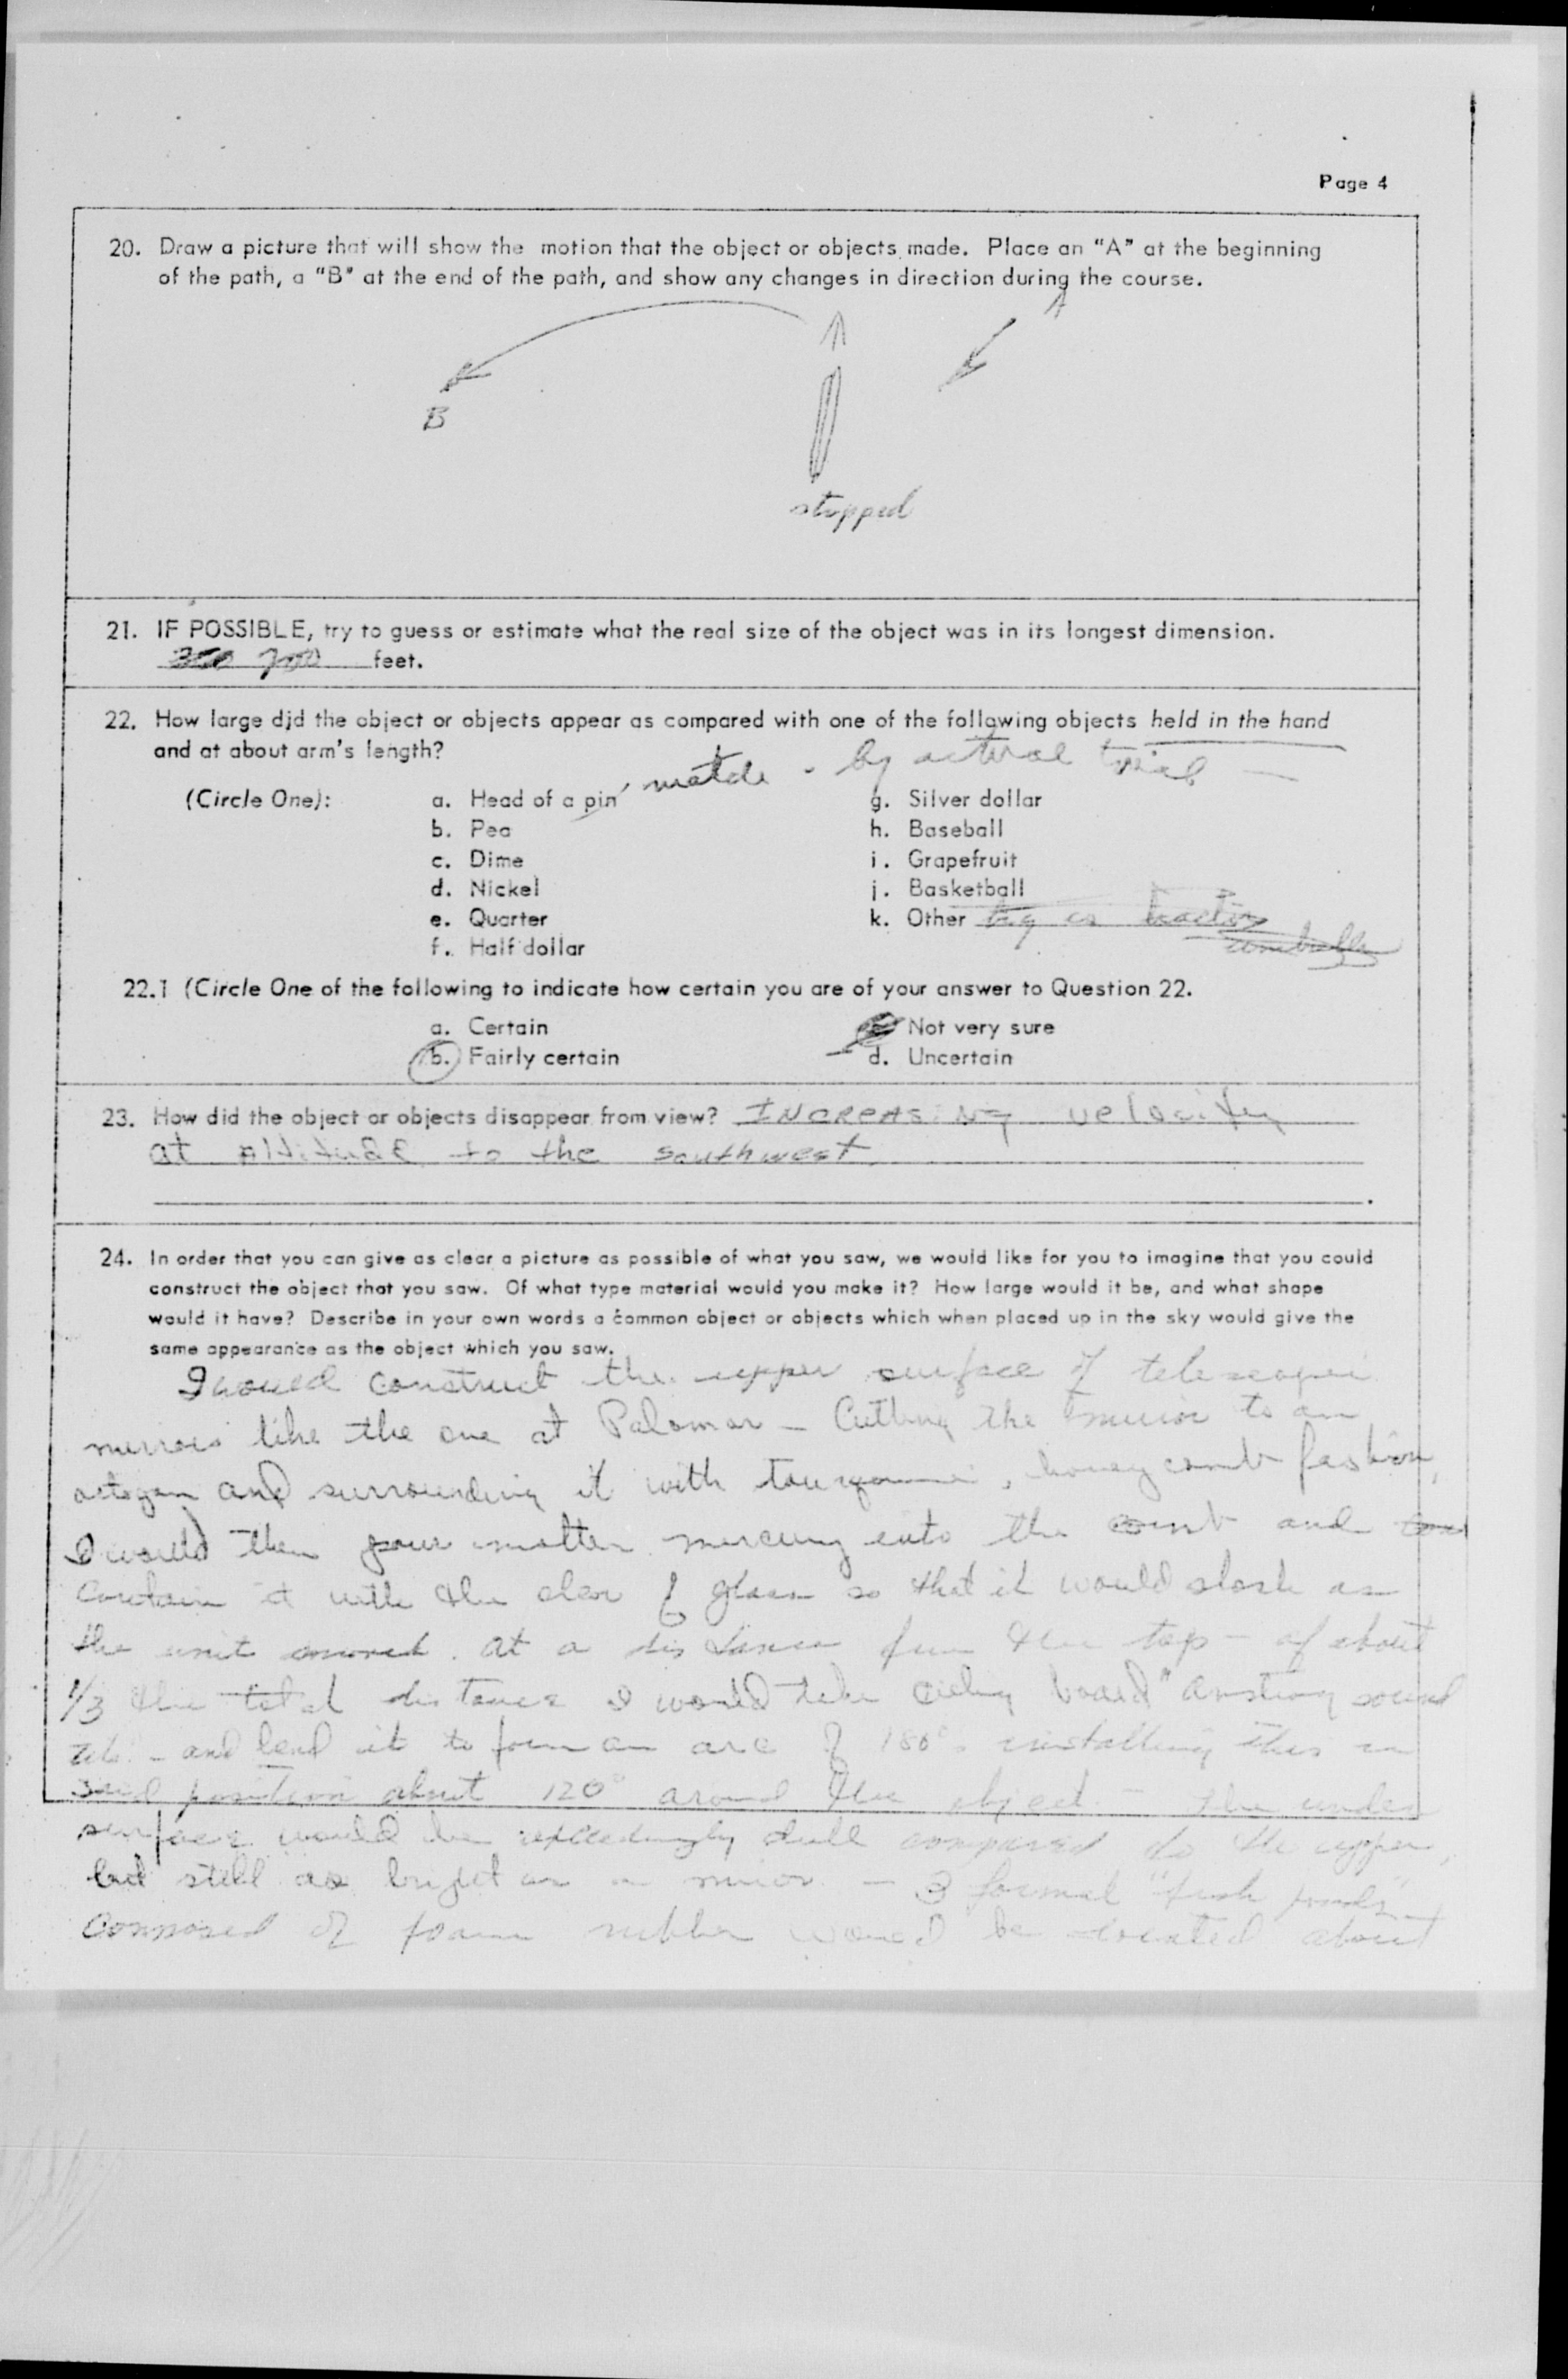 Page 4
20. Draw a picture that will show the motion that the object or objects made. Place an "A" at the beginning
of the path, a "B" at the end of the path, and show any changes in direction during the course.
A
B
stopped
21. IF POSSIBLE, try to guess or estimate what the real size of the object was in its longest dimension.
700 feet.
22. How large did the object or objects appear as compared with one of the following objects held in the hand
and at about arm's length?
match - by actual trial -
(Circle One): a. Head of a pin g. Silver dollar
b. Pea h. Baseball
c. Dime i. Grapefruit
d. Nickel j. Basketball
e. Quarter k. Other big as
umbrella
f. Half dollar
22.1 (Circle One of the following to indicate how certain you are of your answer to Question 22.
a. Certain Not very sure
b. Fairly certain d. Uncertain
23. How did the object or objects disappear from view? INCREASING velocity
at altitude to the southwest
24. In order that you can give as clear a picture as possible of what you saw, we would like for you to imagine that you could
construct the object that you saw. Of what type material would you make it? How large would it be, and what shape
would it have? Describe in your own words a common object or objects which when placed up in the sky would give the
same appearance as the object which you saw.
I would construct the upper surface of
mirrors like the one at Palomar - Cutting the mirror to an
octogon and surrounding it with honey comb fashion,
I would then pour molten mercury into the comb and
contain it with the clear glass so that it would slosh as
the unit moved. at a distance from the top - of about
1/3 the total distance I would take ceiling board sound
and bend it to form an arc of 180° installing this in
position about 120° around the object - the under
surface would be exceedingly dull compared to the upper,
but still as bright as a mirror - 3 formed
composed of foam rubber would be located about